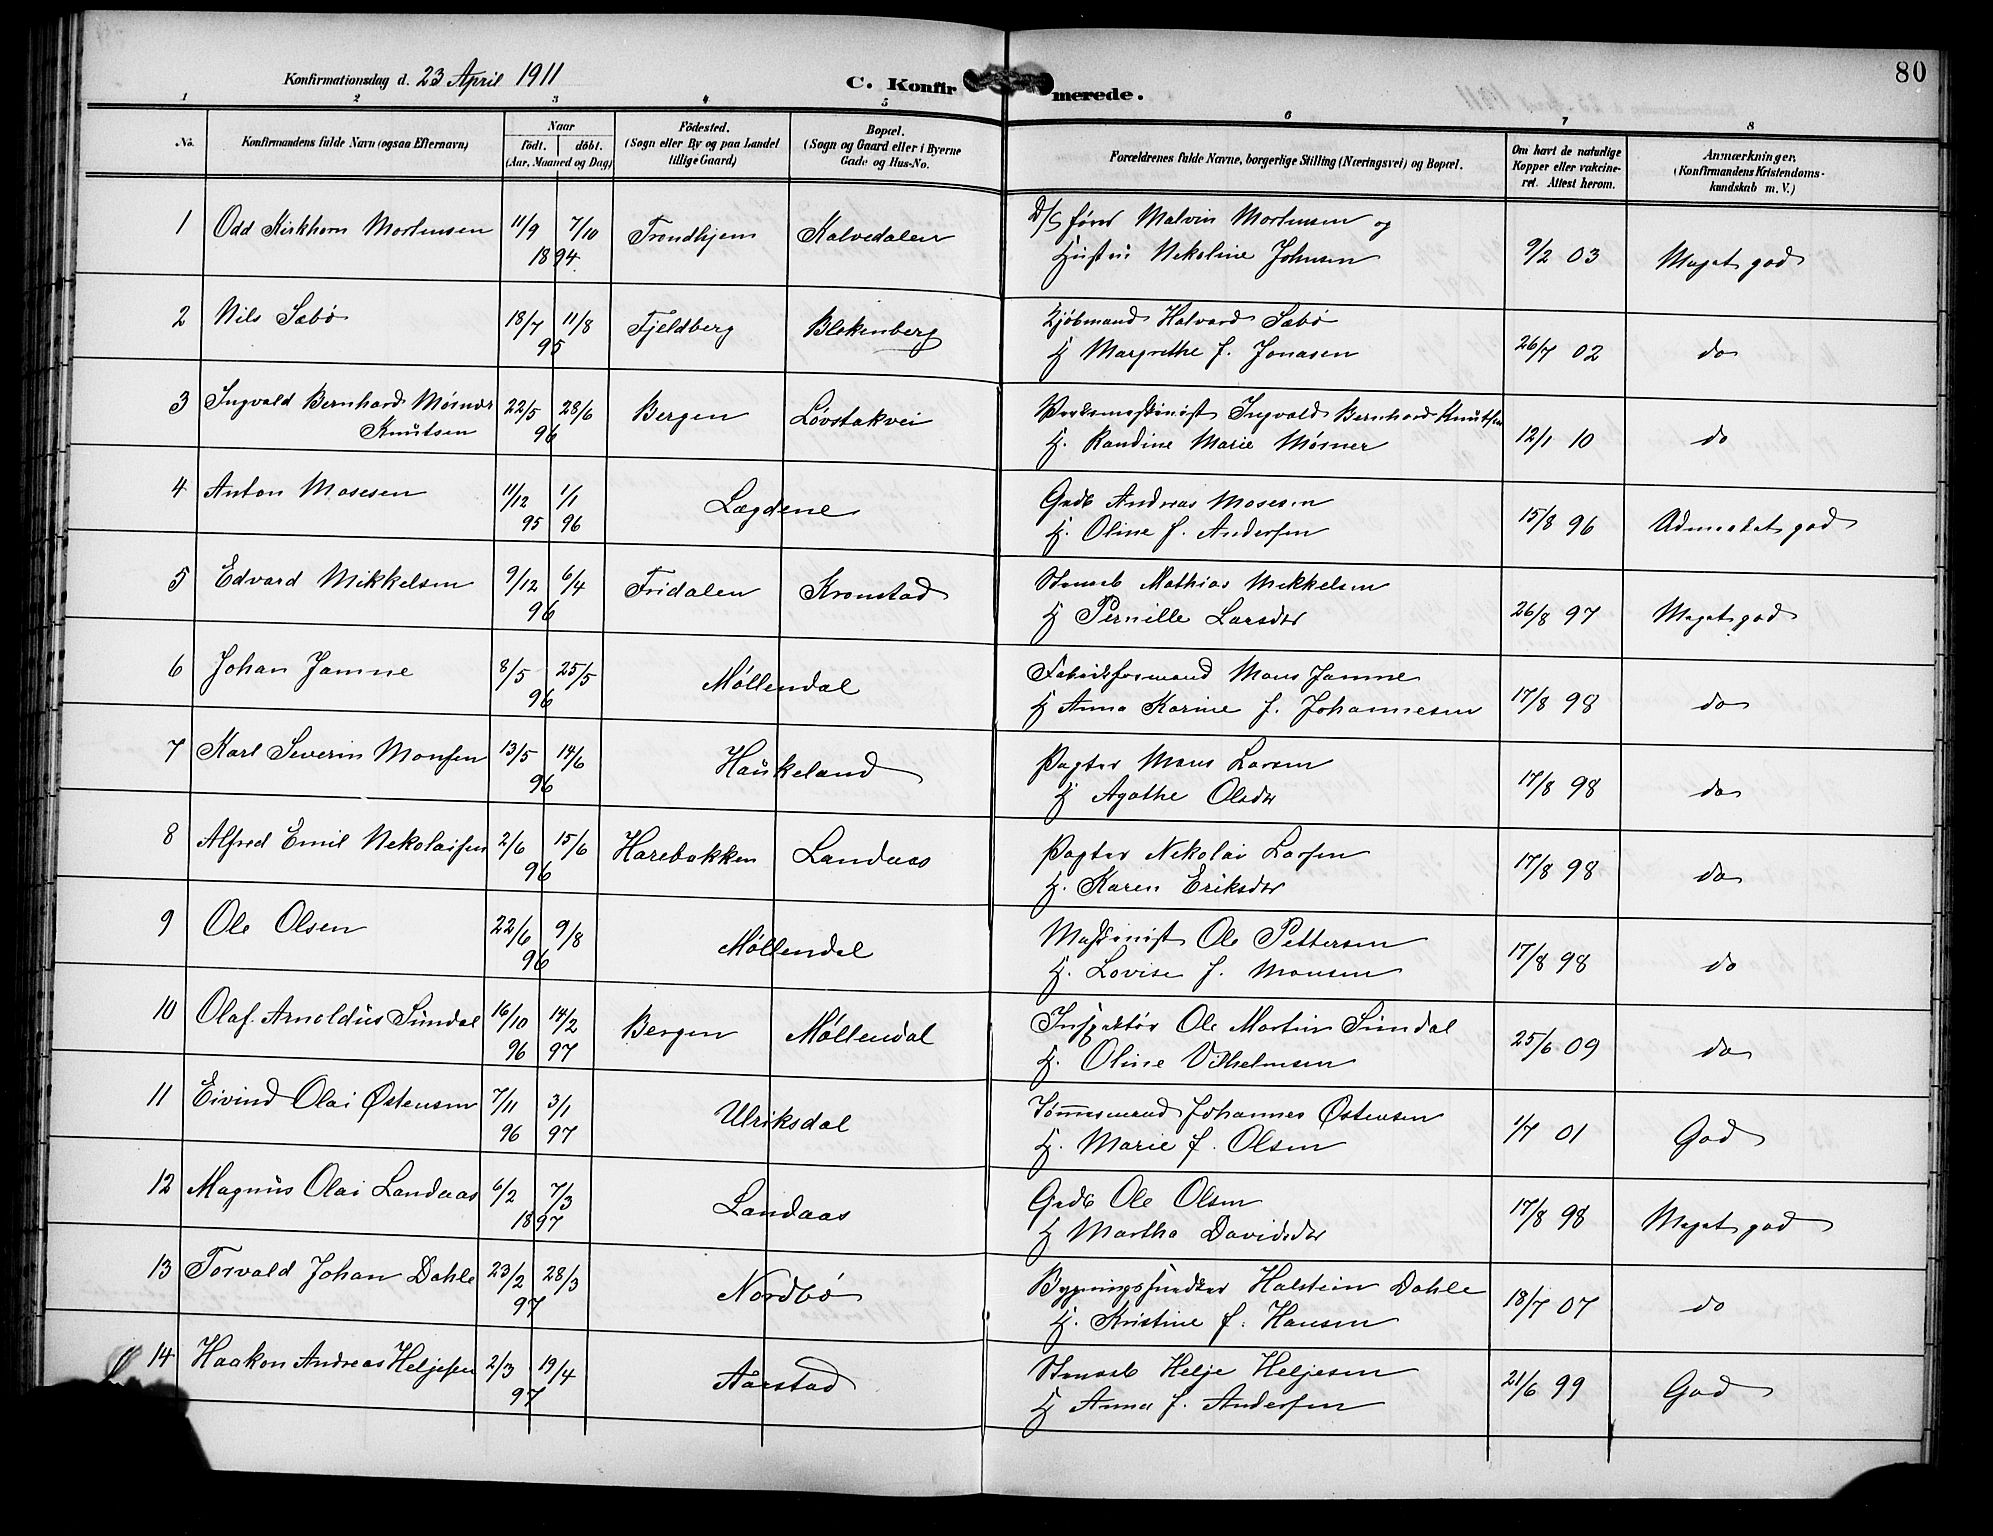 80
Konfirmationsdag d. 23 April 1911
C. Konfirmerede.
1 2 3 4 5 6 7 8
No.
Konfirmandens fulde Navn (ogsaa Efternavn)
Naar
födt. döbt.
(Aar, Maaned og Dag)
Födested.
(Sogn eller By og paa Landet
tillige Gaard)
Bopæl.
(Sogn og Gaard eller i Byerne
Gade og Hus-No.
Forældrenes fulde Navne, borgerlige Stilling (Næringsvei) og Bopæl.
Om havt de naturlige
Kopper eller vakcine-
ret. Attest herom.
Anmærkninger.
(Konfirmandens Kristendoms-
kundskab m. V.)
1 Odd Kirkhorn Mortensen 11/9 7/10 1894. Trondhjem Kalvedalen
D/S förer Malvin Mortensen og
Hustru Nekoline Johnsen 9/2 03 Meget god
2 Nils Sæbö 18/7 11/8 95 Fjeldberg Blekenberg
Kjöbmand Halvard Sæbö
H Margrethe f. Jonasen 26/7 02 do
3 Ingvald Bernhard Mösner
Knutsen 22/5 28/6 96 Bergen Lövstakvei
Verksmaskinist Ingvald Bernhard Knutsen
H. Randine Marie Mösner 12/1 10 do
4 Anton Mosesen 11/12 95 1/1 96 Lægdene
Grdb Andreas Mosesen
H. Oline f. Andersen 15/8 96 Udmerket god
5 Edvard Mikkelsen 9/12 6/4 96 Fridalen Kronstad
Mathias Mikkelsen
H Pernille Larsdr 26/8 97 Meget god
6 Johan Jamne 8/5 25/5 96 Möllendal
Fabrikformand Mons Jamne
H Anna Karine f. Johannesen 17/8 98 do
7 Karl Severin Monsen 13/5 14/6 96 Haukeland
Pagter Mons Larsen
H Agathe Olsdr 17/8 98 do
8 Alfred Emil Nekolaisen 2/6 15/6 96 Harebakken Landaas
Pagter Nekolai Larsen
H. Karen Eriksdr 17/8 98 do
9 Ole Olsen 22/6 9/8 96 Möllendal
Maskinist Ole Pettersen
H. Lovise f. Monsen 17/8 98 do
10 Olaf Arnoldus Sundal 16/10 96 14/2 97 Bergen Möllendal
Inspektör Ole Martin Sundal
H. Oline Vilhelmsen 25/6 09 do
11 Eivind Olai Östensen 7/11 96 3/1 97 Ulriksdal
Tömmermand Johannes Östensen
H. Marie f. Olsen 1/7 01 God
12 Magnus Olai Landaas 6/2 7/3 1897 Landaas
Grdb Ole Olsen
H Martha Davidsdr 17/8 98 Meget god
13 Torvald Johan Dahle 23/2 28/3 97 Nordbö
Bygningssnedker Halstein Dahle
H. Kristine f. Hansen 18/7 07 do
14 Haakon Andreas Heljesen 2/3 19/4 97 Aarstad
Helje Heljesen
H Anna f. Andersen 21/6 99 God